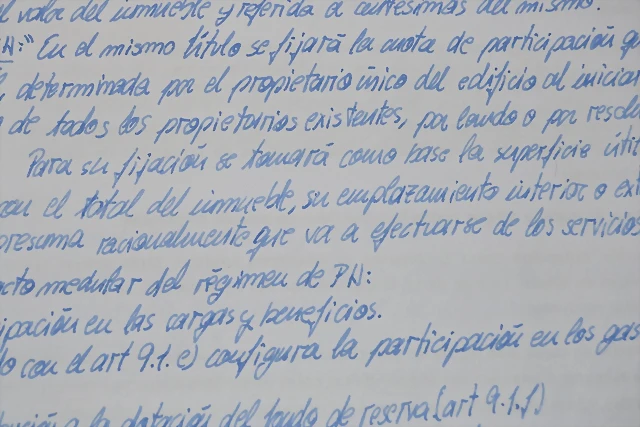 el valor del inmueble y referida a centésimas del mismo.
PH:" En el mismo título se fijará la cuota de participación qu
determinada por el propietario único del edificio al iniciar
n de todos los propietarios existentes, por laudo o por resolu
Para su fijación se tomará como base la superficie útil
con el total del inmueble, su emplazamiento interior o ext
presuma racionalmente que va a efectuarse de los servicios
acto medular del régimen de PH:
cipación en las cargas y beneficios.
do con el art 9.1. e) configura la participación en los gas
a la dotación del fondo de reserva (art 9.1.f)